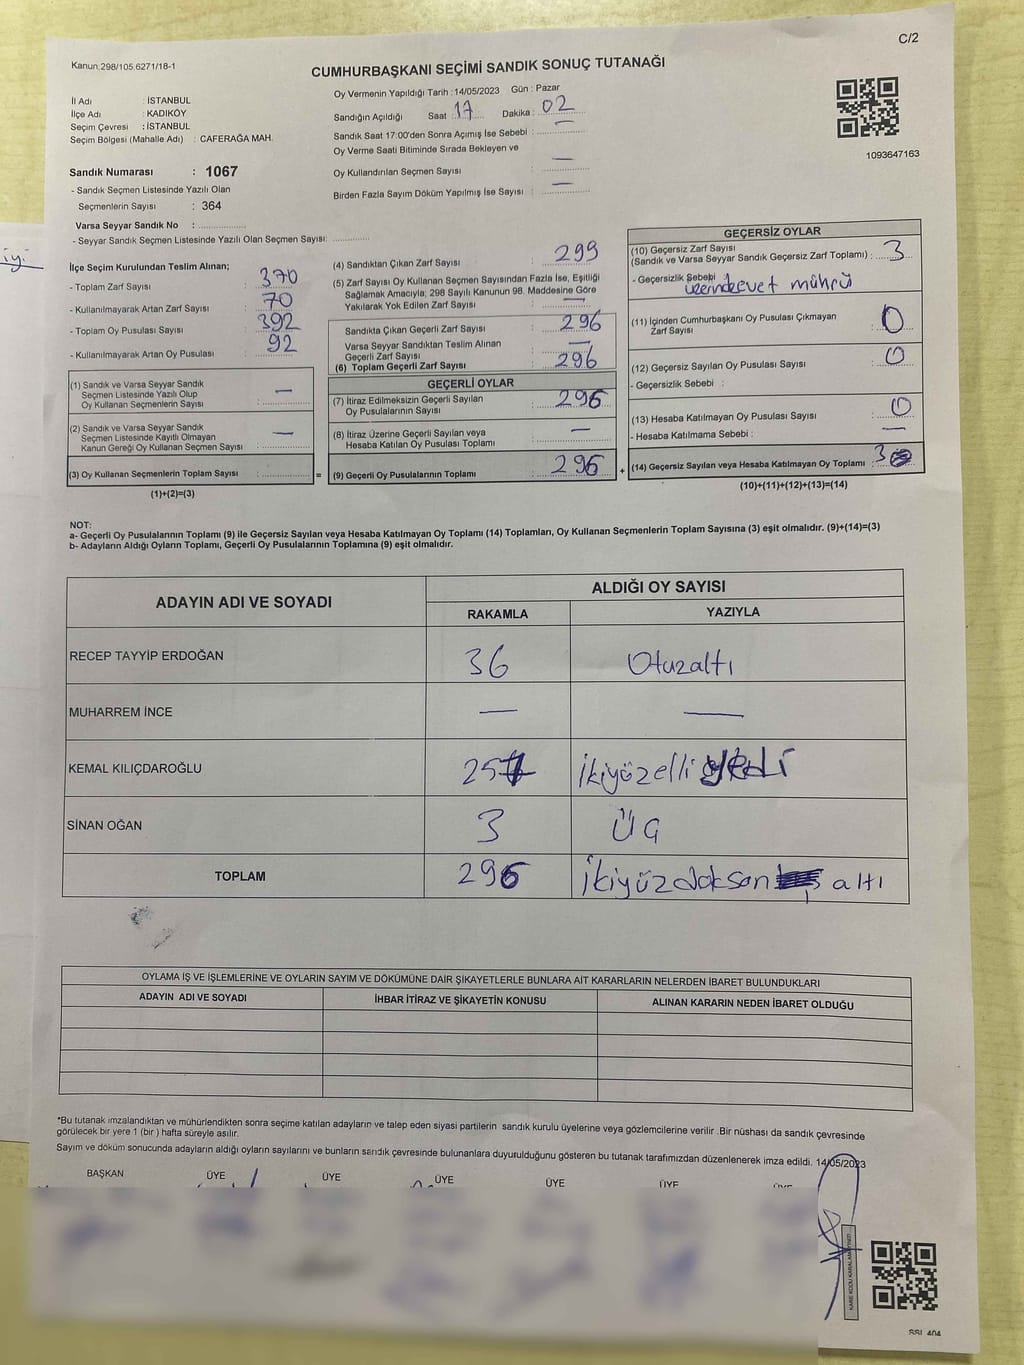 C/2
Kanun:298/105.6271/18-1
CUMHURBAŞKANI SEÇİMİ SANDIK SONUÇ TUTANAĞI
İl Adı : İSTANBUL
İlçe Adı : KADIKÖY
Seçim Çevresi : İSTANBUL
Seçim Bölgesi (Mahalle Adı) : CAFERAĞA MAH.
Sandık Numarası : 1067
- Sandık Seçmen Listesinde Yazılı Olan
Seçmenlerin Sayısı : 364
Varsa Seyyar Sandık No :
- Seyyar Sandık Seçmen Listesinde Yazılı Olan Seçmen Sayısı:
Oy Vermenin Yapıldığı Tarih : 14/05/2023 Gün : Pazar
Sandığın Açıldığı Saat 17 Dakika : 02
Sandık Saat 17:00'den Sonra Açımış İse Sebebi : —
Oy Verme Saati Bitiminde Sırada Bekleyen ve
Oy Kullandırılan Seçmen Sayısı : —
Birden Fazla Sayım Döküm Yapılmış İse Sayısı : —
1093647163
iyi
İlçe Seçim Kurulundan Teslim Alınan;
- Toplam Zarf Sayısı : 370
- Kullanılmayarak Artan Zarf Sayısı : 70
- Toplam Oy Pusulası Sayısı : 392
- Kullanılmayarak Artan Oy Pusulası : 92
(1) Sandık ve Varsa Seyyar Sandık
Seçmen Listesinde Yazılı Olup
Oy Kullanan Seçmenlerin Sayısı : —
(2) Sandık ve Varsa Seyyar Sandık
Seçmen Listesinde Kayıtlı Olmayan
Kanun Gereği Oy Kullanan Seçmen Sayısı : —
(3) Oy Kullanan Seçmenlerin Toplam Sayısı : =
(1)+(2)=(3)
(4) Sandıktan Çıkan Zarf Sayısı : 299
(5) Zarf Sayısı Oy Kullanan Seçmen Sayısından Fazla İse, Eşitliği
Sağlamak Amacıyla; 298 Sayılı Kanunun 98. Maddesine Göre
Yakılarak Yok Edilen Zarf Sayısı : —
Sandıkta Çıkan Geçerli Zarf Sayısı : 296
Varsa Seyyar Sandıktan Teslim Alınan
Geçerli Zarf Sayısı : —
(6) Toplam Geçerli Zarf Sayısı : 296
GEÇERLİ OYLAR
(7) İtiraz Edilmeksizin Geçerli Sayılan
Oy Pusulalarının Sayısı : 296
(8) İtiraz Üzerine Geçerli Sayılan veya
Hesaba Katılan Oy Pusulası Toplamı : —
(9) Geçerli Oy Pusulalarının Toplamı : 296 +
GEÇERSİZ OYLAR
(10) Geçersiz Zarf Sayısı
(Sandık ve Varsa Seyyar Sandık Geçersiz Zarf Toplamı) : 3
- Geçersizlik Sebebi : üzerinde evet mührü
(11) İçinden Cumhurbaşkanı Oy Pusulası Çıkmayan
Zarf Sayısı : 0
(12) Geçersiz Sayılan Oy Pusulası Sayısı : 0
- Geçersizlik Sebebi :
(13) Hesaba Katılmayan Oy Pusulası Sayısı : 0
- Hesaba Katılmama Sebebi : —
(14) Geçersiz Sayılan veya Hesaba Katılmayan Oy Toplamı : 3
(10)+(11)+(12)+(13)=(14)
NOT:
a- Geçerli Oy Pusulalarının Toplamı (9) ile Geçersiz Sayılan veya Hesaba Katılmayan Oy Toplamı (14) Toplamları, Oy Kullanan Seçmenlerin Toplam Sayısına (3) eşit olmalıdır. (9)+(14)=(3)
b- Adayların Aldığı Oyların Toplamı, Geçerli Oy Pusulalarının Toplamına (9) eşit olmalıdır.
ADAYIN ADI VE SOYADI
ALDIĞI OY SAYISI
RAKAMLA YAZIYLA
RECEP TAYYİP ERDOĞAN 36 Otuzaltı
MUHARREM İNCE — —
KEMAL KILIÇDAROĞLU 257 İkiyüzelli yedi
SİNAN OĞAN 3 Üç
TOPLAM 296 İkiyüzdoksan altı
OYLAMA İŞ VE İŞLEMLERİNE VE OYLARIN SAYIM VE DÖKÜMÜNE DAİR ŞİKAYETLERLE BUNLARA AİT KARARLARIN NELERDEN İBARET BULUNDUKLARI
ADAYIN ADI VE SOYADI İHBAR İTİRAZ VE ŞİKAYETİN KONUSU ALINAN KARARIN NEDEN İBARET OLDUĞU
*Bu tutanak imzalandıktan ve mühürlendikten sonra seçime katılan adayların ve talep eden siyasi partilerin sandık kurulu üyelerine veya gözlemcilerine verilir .Bir nüshası da sandık çevresinde
görülecek bir yere 1 (bir) hafta süreyle asılır.
Sayım ve döküm sonucunda adayların aldığı oyların sayılarını ve bunların sandık çevresinde bulunanlara duyurulduğunu gösteren bu tutanak tarafımızdan düzenlenerek imza edildi. 14/05/2023
BAŞKAN ÜYE ÜYE ÜYE ÜYE ÜYE ÜYE